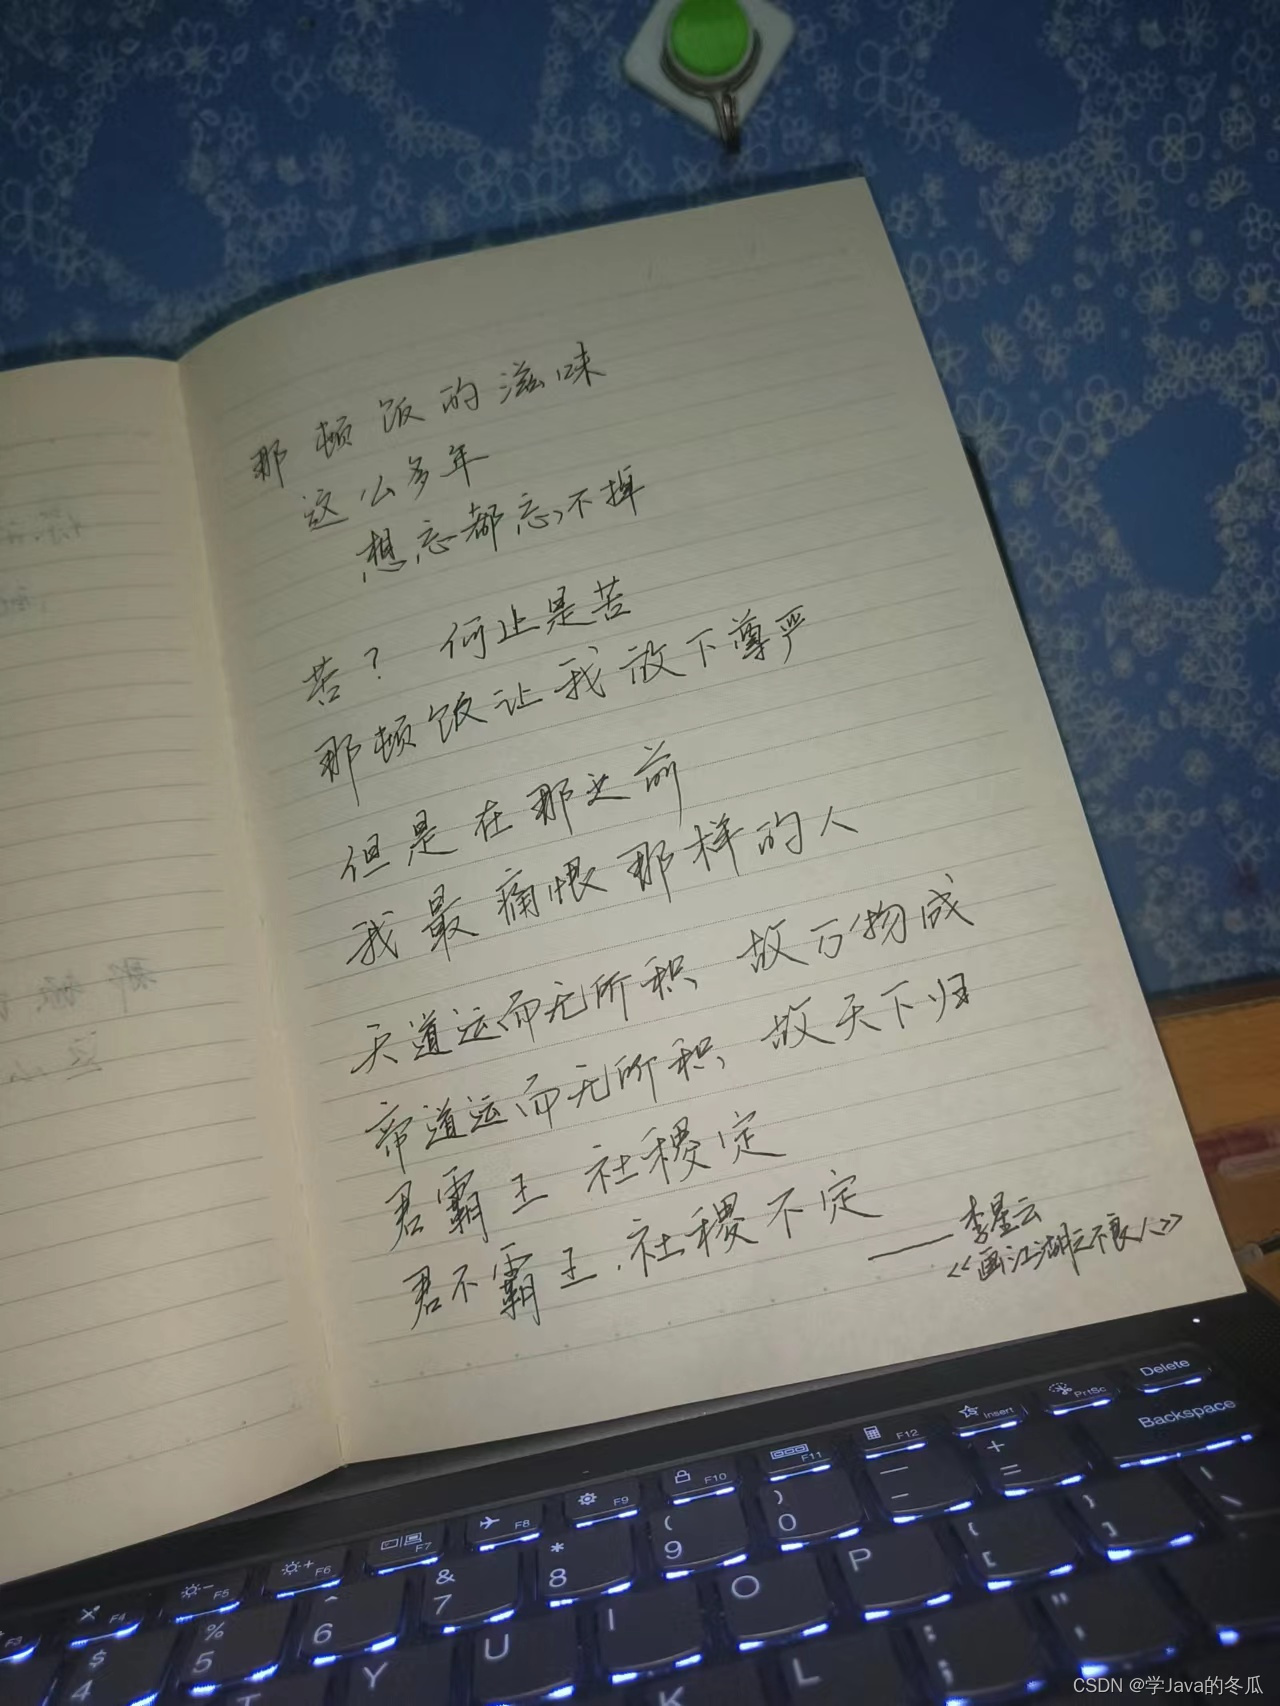 那顿饭的滋味
这么多年
想忘都忘不掉
苦？ 何止是苦
那顿饭让我放下尊严
但是在那之前
我最痛恨那样的人
天道运而无所积、故万物成
帝道运而无所积、故天下归
君霸王 社稷定
君不霸王、社稷不定
——李星云
<<画江湖之不良人>>
Delete
PrtSc
Insert
F12
F11
F10
F9
F8
F7
F6
F5
F4
F3
Backspace
+ =
— -
) 0
( 9
* 8
& 7
^ 6
% 5
$ 4
{ [
} ]
| \
P
O
I
U
Y
T
" '
: ;
L
K
CSDN @学Java的冬瓜